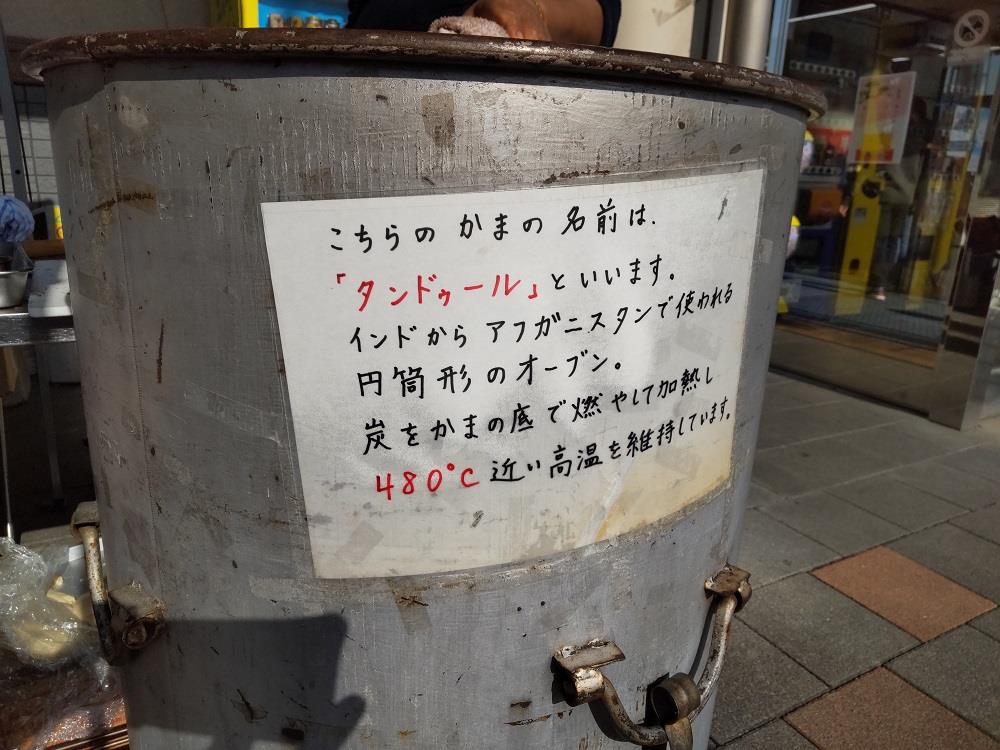 こちらの かまの 名前は、
「タンドゥール」といいます。
インドから アフガニスタンで使われる
円筒形のオーブン。
炭をかまの底で燃やして加熱し
480℃近い高温を維持しています。